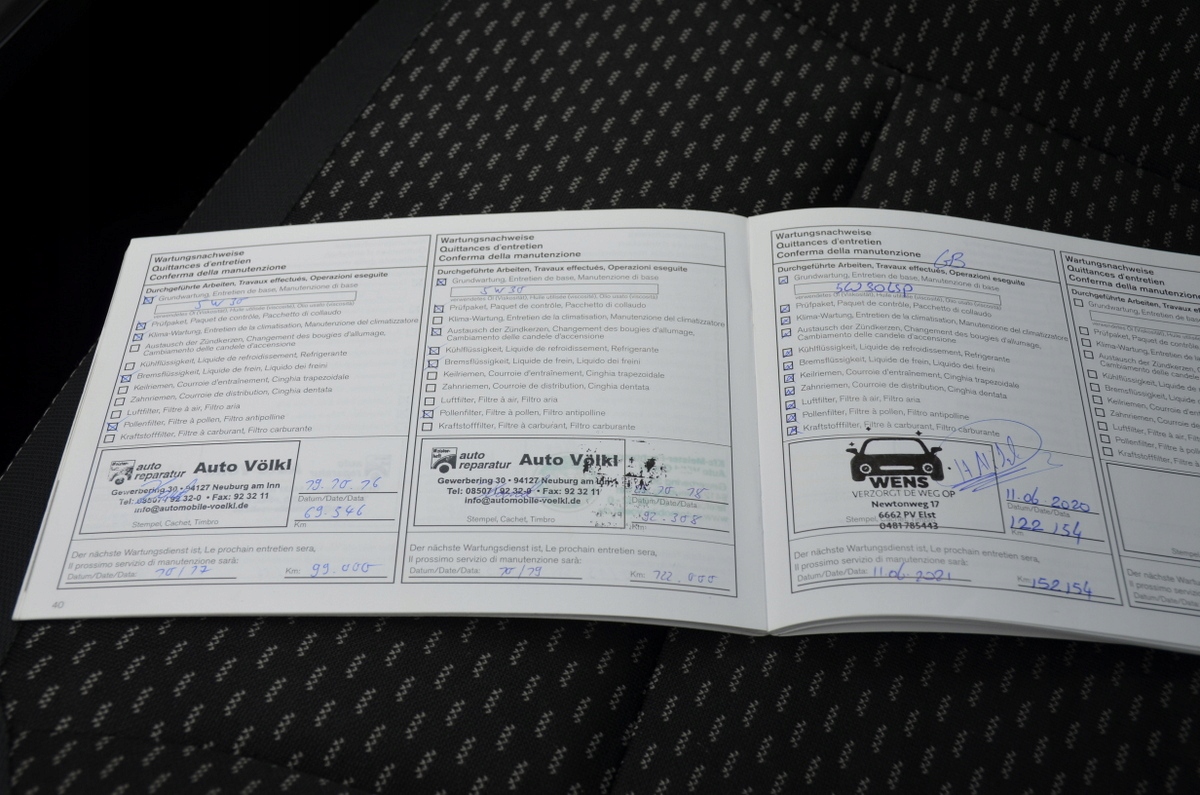 Wartungsnachweise
Quittances d'entretien
Conferma della manutenzione
Durchgeführte Arbeiten, Travaux effectués, Operazioni eseguite
Grundwartung, Entretien de base, Manutenzione di base
5W30
verwendetes Öl (Viskosität), Huile utilisée (viscosité), Olio usato (viscosità)
Prüfpaket, Paquet de contrôle, Pacchetto di collaudo
Klima-Wartung, Entretien de la climatisation, Manutenzione del climatizzatore
Austausch der Zündkerzen, Changement des bougies d'allumage,
Cambiamento delle candele d'accensione
Kühlflüssigkeit, Liquide de refroidissement, Refrigerante
Bremsflüssigkeit, Liquide de frein, Liquido dei freini
Keilriemen, Courroie d'entraînement, Cinghia trapezoidale
Zahnriemen, Courroie de distribution, Cinghia dentata
Luftfilter, Filtre à air, Filtro aria
Pollenfilter, Filtre à pollen, Filtro antipolline
Kraftstofffilter, Filtre à carburant, Filtro carburante
auto reparatur Auto Völkl
Gewerbering 30 • 94127 Neuburg am Inn
Tel: 08507 / 92 32-0 • Fax: 92 32 11
info@automobile-voelkl.de
Stempel, Cachet, Timbro
19.10.16
Datum/Date/Data
69.546
Km
Der nächste Wartungsdienst ist, Le prochain entretien sera,
Il prossimo servizio di manutenzione sarà:
Datum/Date/Data: 10/17 Km: 99.000
40
Wartungsnachweise
Quittances d'entretien
Conferma della manutenzione
Durchgeführte Arbeiten, Travaux effectués, Operazioni eseguite
Grundwartung, Entretien de base, Manutenzione di base
5W30
verwendetes Öl (Viskosität), Huile utilisée (viscosité), Olio usato (viscosità)
Prüfpaket, Paquet de contrôle, Pacchetto di collaudo
Klima-Wartung, Entretien de la climatisation, Manutenzione del climatizzatore
Austausch der Zündkerzen, Changement des bougies d'allumage,
Cambiamento delle candele d'accensione
Kühlflüssigkeit, Liquide de refroidissement, Refrigerante
Bremsflüssigkeit, Liquide de frein, Liquido dei freini
Keilriemen, Courroie d'entraînement, Cinghia trapezoidale
Zahnriemen, Courroie de distribution, Cinghia dentata
Luftfilter, Filtre à air, Filtro aria
Pollenfilter, Filtre à pollen, Filtro antipolline
Kraftstofffilter, Filtre à carburant, Filtro carburante
auto reparatur Auto Völkl
Gewerbering 30 • 94127 Neuburg am Inn
Tel: 08507 / 92 32-0 • Fax: 92 32 11
info@automobile-voelkl.de
Stempel, Cachet, Timbro
10.18
Datum/Date/Data
92.308
Km
Der nächste Wartungsdienst ist, Le prochain entretien sera,
Il prossimo servizio di manutenzione sarà:
Datum/Date/Data: 10/19 Km: 122.000
Wartungsnachweise
Quittances d'entretien
Conferma della manutenzione
GB
Durchgeführte Arbeiten, Travaux effectués, Operazioni eseguite
Grundwartung, Entretien de base, Manutenzione di base
5W30LSP
verwendetes Öl (Viskosität), Huile utilisée (viscosité), Olio usato (viscosità)
Prüfpaket, Paquet de contrôle, Pacchetto di collaudo
Klima-Wartung, Entretien de la climatisation, Manutenzione del climatizzatore
Austausch der Zündkerzen, Changement des bougies d'allumage,
Cambiamento delle candele d'accensione
Kühlflüssigkeit, Liquide de refroidissement, Refrigerante
Bremsflüssigkeit, Liquide de frein, Liquido dei freini
Keilriemen, Courroie d'entraînement, Cinghia trapezoidale
Zahnriemen, Courroie de distribution, Cinghia dentata
Luftfilter, Filtre à air, Filtro aria
Pollenfilter, Filtre à pollen, Filtro antipolline
Kraftstofffilter, Filtre à carburant, Filtro carburante
WENS
VERZORGT DE WEG OP
Newtonweg 17
6662 PV Elst
0481-785443
Stempel
11-06-2020
Datum/Date/Data
122154
Km
Der nächste Wartungsdienst ist, Le prochain entretien sera,
Il prossimo servizio di manutenzione sarà:
Datum/Date/Data: 11-06-2021 Km: 152154
Wartungsnachweise
Quittances d'entretien
Conferma della manutenzione
Durchgeführte Arbeiten, Tra
Grundwartung, Entretien
Prüfpaket, Paquet de contrôle
Klima-Wartung, Entretien de
Austausch der Zündkerzen
Cambiamento delle
Kühlflüssigkeit, Liquide
Bremsflüssigkeit, Liquide
Keilriemen, Courroie d'en
Zahnriemen, Courroie
Luftfilter, Filtre à air, Filtro
Pollenfilter, Filtre à pol
Kraftstofffilter, Filtre à
Stemp
Der nächste Wartungsdienst
Il prossimo servizio di
Datum/Date/Data: